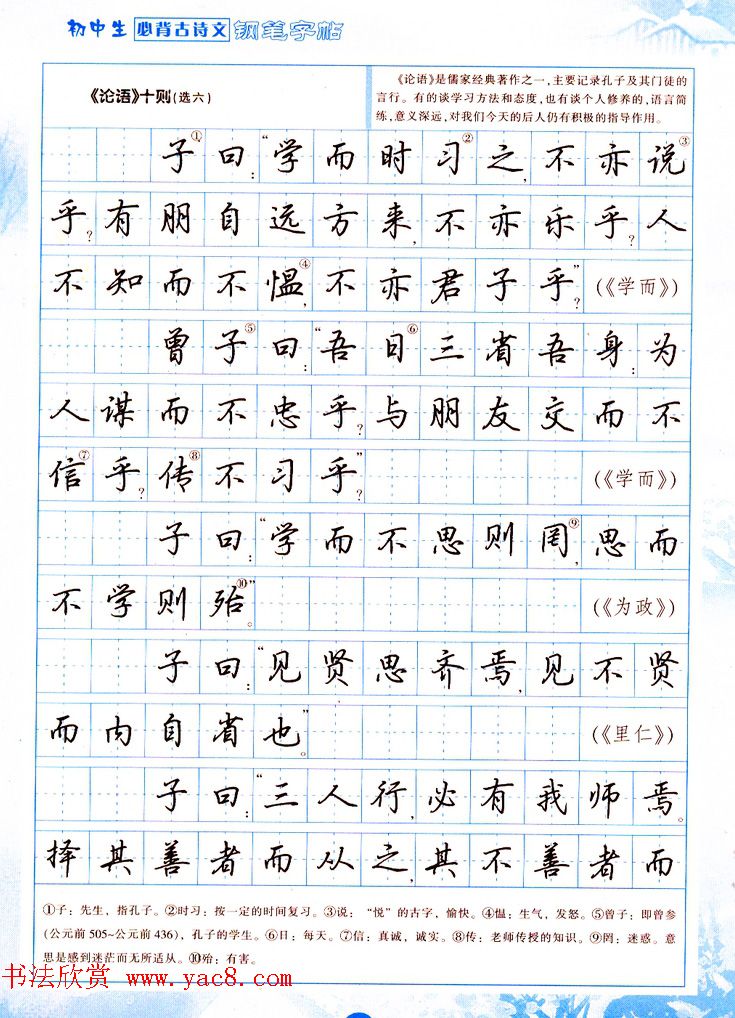 初中生 必背古诗文 钢笔字帖
《论语》十则(选六)
《论语》是儒家经典著作之一,主要记录孔子及其门徒的
言行。有的谈学习方法和态度,也有谈个人修养的,语言简
练,意义深远,对我们今天的后人仍有积极的指导作用。
子①曰:“学而时习②之,不亦说③
乎?有朋自远方来,不亦乐乎?人
不知而不愠④,不亦君子乎”(《学而》)
曾子⑤曰:“吾日⑥三省吾身:为
人谋而不忠乎?与朋友交而不
信⑦乎?传⑧不习乎?”(《学而》)
子曰:“学而不思则罔⑨,思而
不学则殆⑩。”(《为政》)
子曰:“见贤思齐焉,见不贤
而内自省也。”(《里仁》)
子曰:“三人行,必有我师焉。
择其善者而从之,其不善者而
①子:先生,指孔子。②时习:按一定的时间复习。③说:“悦”的古字,愉快。④愠:生气,发怒。⑤曾子:即曾参
(公元前505~公元前436),孔子的学生。⑥日:每天。⑦信:真诚,诚实。⑧传:老师传授的知识。⑨罔:迷惑。意
思是感到迷茫而无所适从。⑩殆:有害。
书法欣赏 www.yac8.com